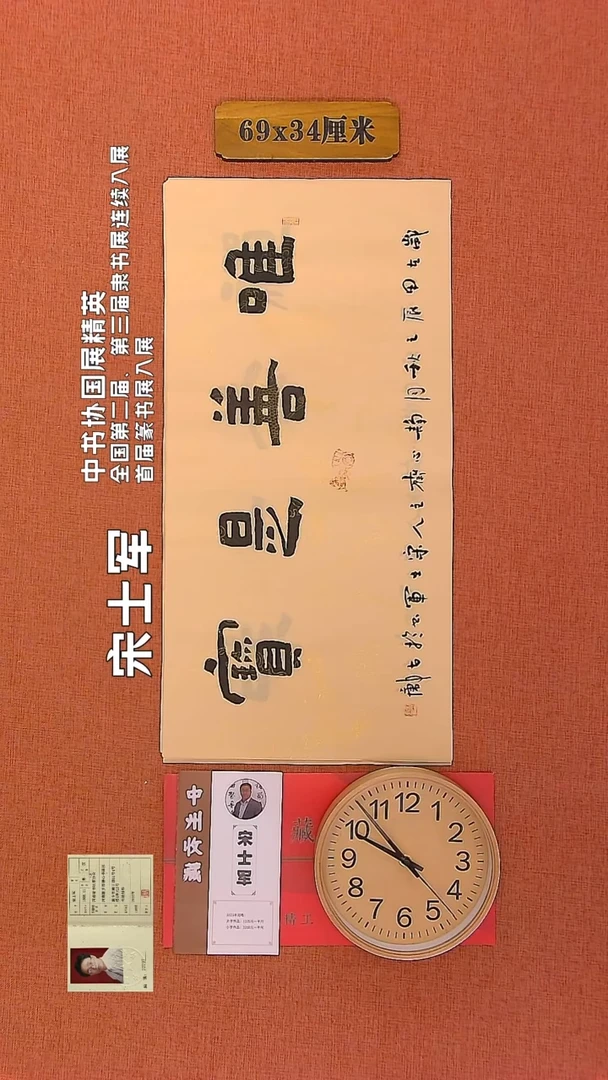 69x34厘米
中书协国展精英
全国第二届、第三届隶书展连续入展
首届篆书展入展
宋士军
唯善是寶
歲在甲辰之秋月
心齋主人宋士軍於古
宋士军
藏
12
1
2
3
4
5
6
7
8
9
10
11